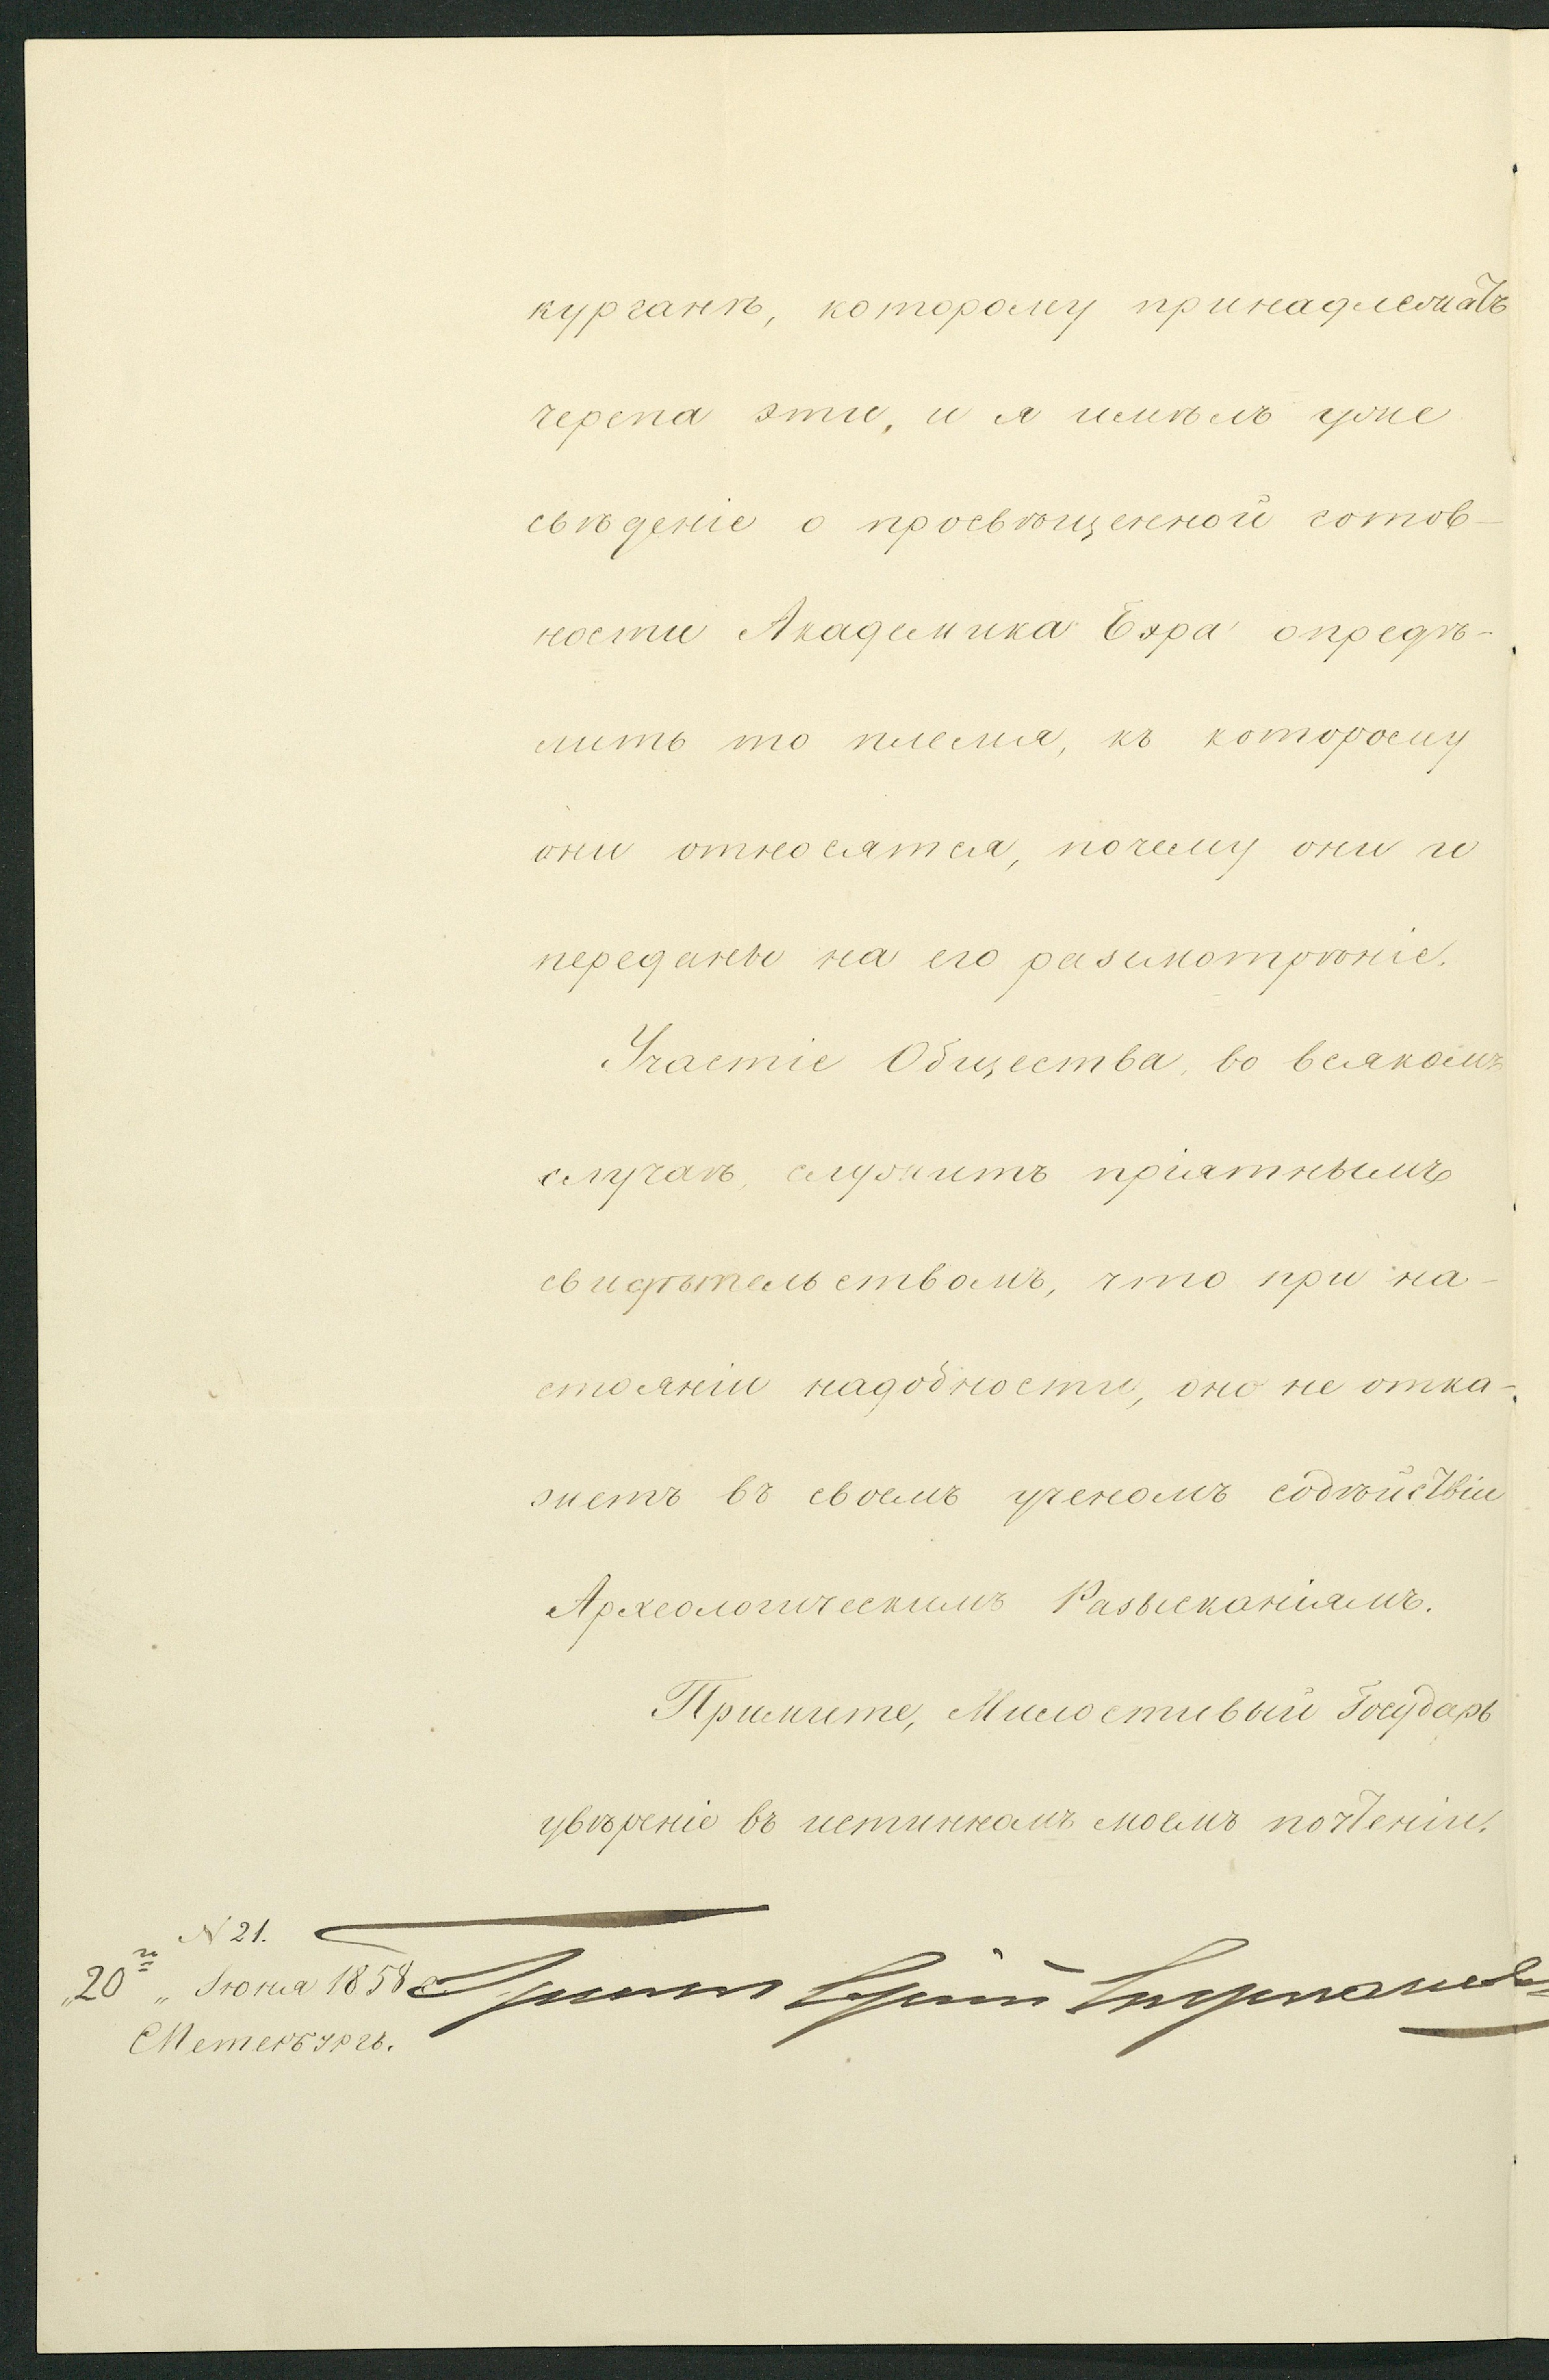 курганѣ, которому принадлежатъ
черепа эти, и я имѣлъ уже
свѣденіе о просвѣщенной готов-
ности Академика Бэра опредѣ-
лить то племя, къ которому
они относятся, почему они и
переданы на его разсмотрѣніе.
Участіе Общества, во всякомъ
случаѣ, служитъ пріятнымъ
свидѣтельствомъ, что при на-
стояніи надобности, оно не отка-
жетъ въ своемъ ученомъ содѣйствіи
Археологическимъ Разысканіямъ.
Примите, Милостивый Государь
увѣреніе въ истинномъ моемъ почтеніи.
N 21.
„20го„ Іюня 1858 г. Графъ Сергій Строгановъ
СПетербургъ.